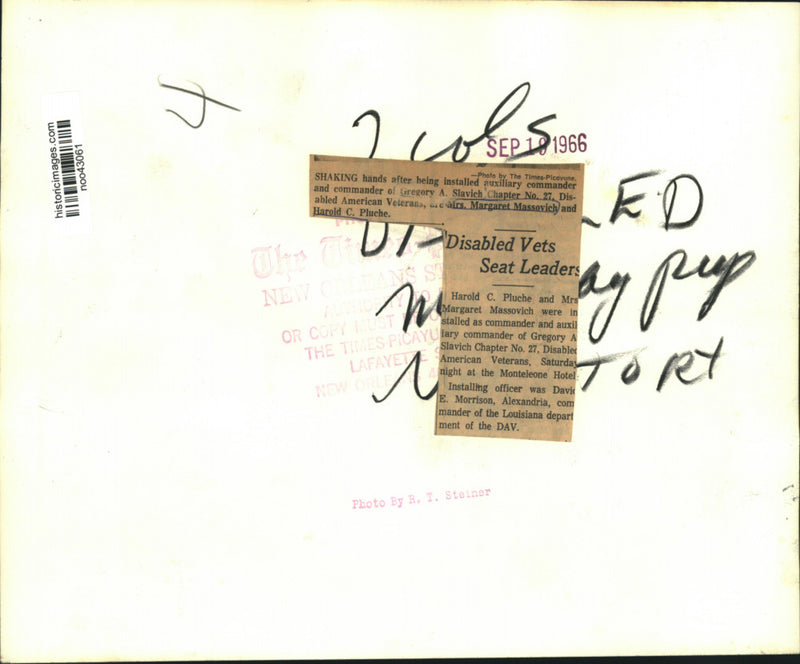 historicimages.com
noo43061
4
2 cols
SEP 19 1966
—Photo by The Times-Picayune.
SHAKING hands after being installed auxiliary commander
and commander of Gregory A. Slavich Chapter No. 27, Dis-
abled American Veterans, are Mrs. Margaret Massovich and
Harold C. Pluche.
LED
Disabled Vets
Seat Leaders
The
NEW ORLEANS
OR COPY MUST
THE TIMES-PICAYU
LAFAYETTE
NEW ORLE
ay pup
TORY
Harold C. Pluche and Mrs
Margaret Massovich were in
stalled as commander and auxil
iary commander of Gregory A
Slavich Chapter No. 27, Disabled
American Veterans, Saturday
night at the Monteleone Hotel
Installing officer was David
E. Morrison, Alexandria, com
mander of the Louisiana depart
ment of the DAV.
Photo By R. T. Steiner